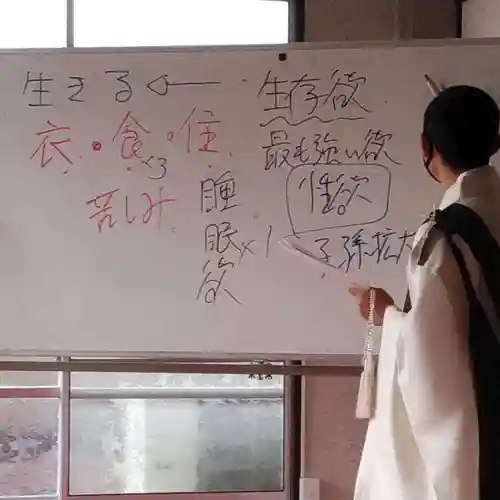 生きる ← 生存欲
衣・食・住
×3
苦しみ
睡眠欲 ×1
最も強い欲
性欲
子孫拡大